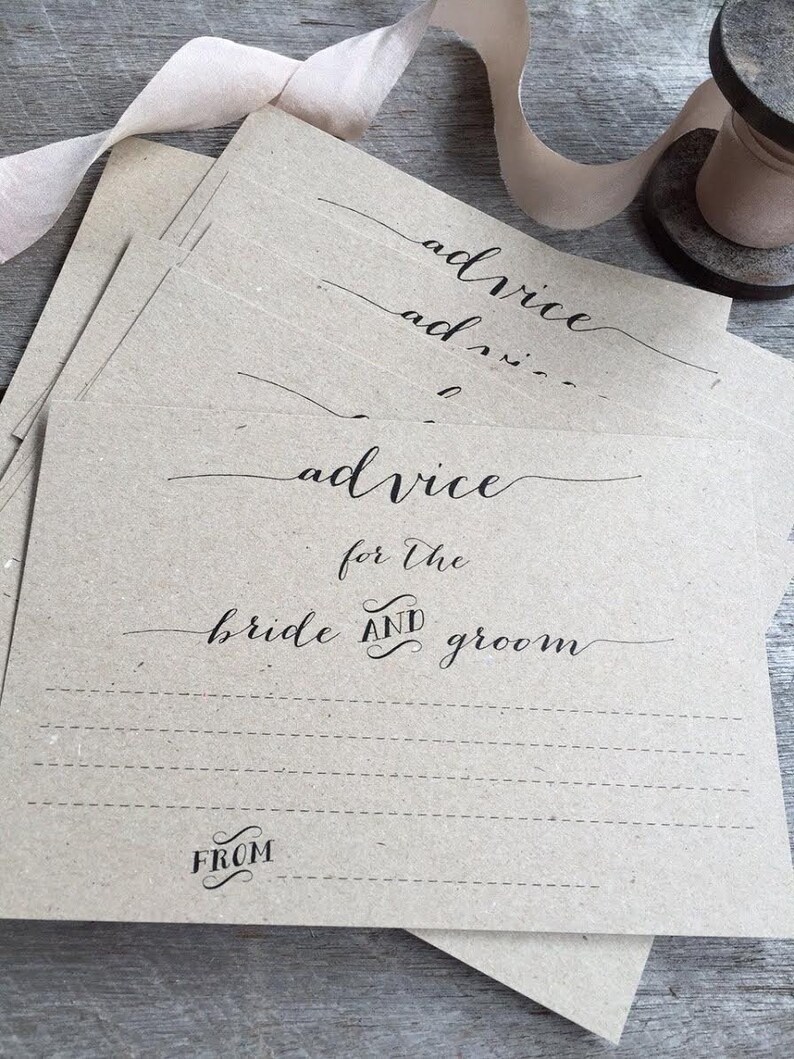 advice
advice
advice
for the
bride AND groom
FROM